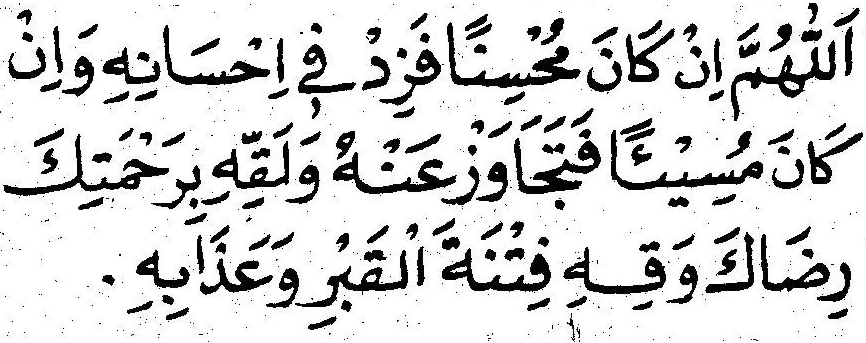 اَللّٰهُمَّ اِنْ كَانَ مُحْسِنًا فَزِدْ فِي اِحْسَانِهِ وَاِنْ
كَانَ مُسِيْئًا فَتَجَاوَزْ عَنْهُ وَلَقِّهِ بِرَحْمَتِكَ
رِضَاكَ وَقِهِ فِتْنَةَ الْقَبْرِ وَعَذَابِهِ .